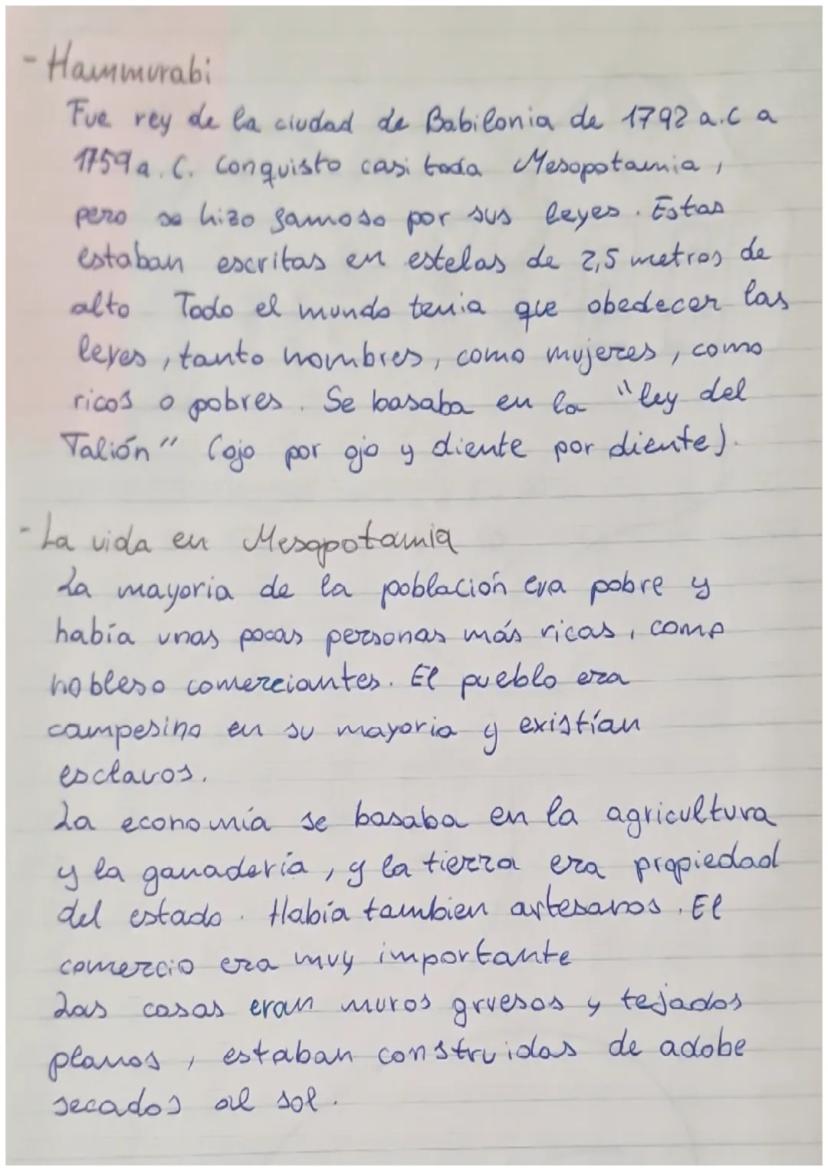 - Hammurabi
Fue rey de la ciudad de Babilonia de 1792 a.C a
1759 a.C. Conquisto casi toda Mesopotamia,
pero se hizo famoso por sus leyes. Estas
estaban escritas en estelas de 2,5 metros de
alto Todo el mundo tenia que obedecer las
leyes, tanto hombres, como mujeres, como
ricos o pobres. Se basaba en la "ley del
Talión" (ojo por ojo y diente por diente).
- La vida en Mesopotamia
La mayoria de la población era pobre y
había unas pocas personas más ricas, como
nobles o comerciantes. El pueblo era
campesino en su mayoria y existían
esclavos.
La economía se basaba en la agricultura
y la ganadería, y la tierra era propiedad
del estado. Había tambien artesanos. El
comercio era muy importante
Las casas eran muros gruesos y tejados
planos, estaban construidas de adobe
secados al sol.